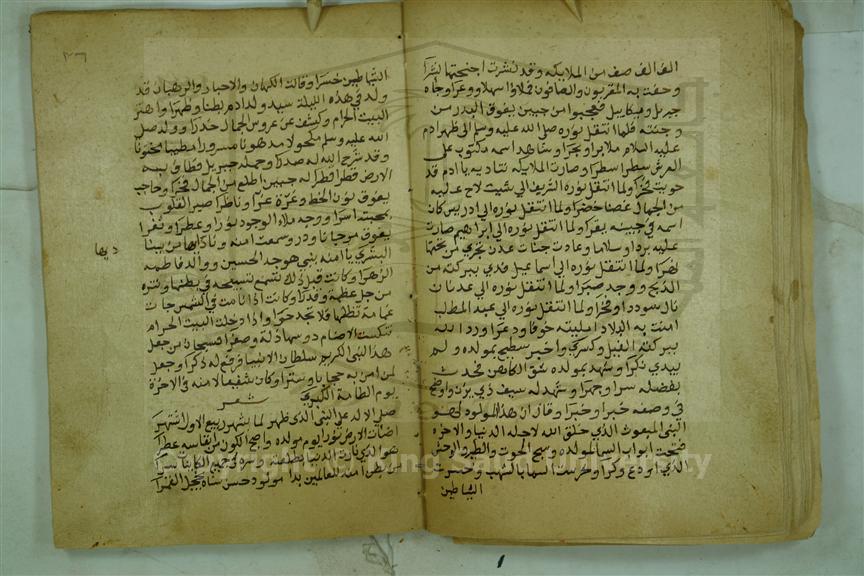 الف الف صف من الملايكه وقد نشرت اجنحتها نشرا
وحفت به المقربون والصافون فملاؤا سهلا ووعرا وجاه
جبريل وميكاييل فعجبوا من جبين يفوق البدر من
وجنته فلما انتقل نوره صلى الله عليه وسلم الى ظهر ادم
عليه السلام ملا برا وبحرا وشاهد اسمه مكتوب على
العرش سطرا سطرا وصارت الملايكه تناديه يا ادم قد
حويت فخرا ولما انتقل نوره الشريف الى شيث لاح عليه
من الجمال غصنا خضرا ولما انتقل نوره الى ادريس كان
اسمه في جبينه يقرا ولما انتقل نوره الى ابراهيم صارت
عليه بردا وسلاما وعادت جنات عدن تجري من تحتها
نهرا ولما انتقل نوره الى اسماعيل فدي ببركته من
الذبح ووجد صبرا ولما انتقل نوره الى عدنان
نال سوددا وفخرا ولما انتقل نوره الى عبد المطلب
امنت به البلاد امليته خوفا وذعرا ورد الله
ببركته الفيل وكسرى واخبر سطيح بمولده ولم
يبدي نكرا وشهد بمولده شق الكاهن فحدث
بفضله سرا وجهرا وشهد له سيف ذي يزن واوضح
في وصفه خبرا وخبرا وقال ان هذا المولود هو
النبي المبعوث الذي خلق الله لاجله الدنيا والاخره
فتحت ابواب السما لمولده وسبح الحوت والطير والوحش
الذي اودع وكرا وحرست السما بالشهب وخسرت
الشياطين
٢٦
الشياطين خسرا وقالت الكهان والاحبار والرهبان قد
ولد في هذه الليلة سيد ولد ادم بطنا وظهرا واهتز
البيت الحرام وكشف عن عروس الجمال خدرا وولد صلى
الله عليه وسلم مكحولا مدهونا مسرورا مطيبا مختونا
وقد شرح الله له صدرا وحمله جبريل فطاف به
الارض قطرا قطرا له جبين اطلع من الجمال فجرا وحاجب
يفوق نون الخط وغرة غرا وناظر صير القلوب
بمحبته اسرا ووجه ملاء الوجود نورا وعطرا وثغرا
يفوق مرجانا ودر وسمعت امنه وناداها من بينا
دبها
البشرى يا امنه بنبي هو جد الحسين ووالد فاطمه
الزهرا وكانت قبل ذلك تسمع تسبيحه في بطنها وتنزه
من جل عظمة وقدرا وكانت اذا نامت في الشمس جات
غمامة تظللها فلا تجد حرا واذا دخلت البيت الحرام
تنكست الاصنام دوسها ذلة وصغرا فسبحان من جعل
هذا النبي الكريم سلطان الانبيا ورفع له ذكرا وجعل
لمن امن به حجابا وسترا وكان شفيعا لامنه في الاخرة
يوم الطامة الكبرى شعر
صلى الاله على النبي الذي ظهر لما بشهر ربيع الاول اشتهر
اضات الارض نورا يوم مولده واضحا الكون من انفاسه عطرا
هو الذي نارت الدنيا بطلعته وسره في جميع الكاينات سرا
من بطن امنة للعالمين بدا مولود حسن سناه يخجل القمرا